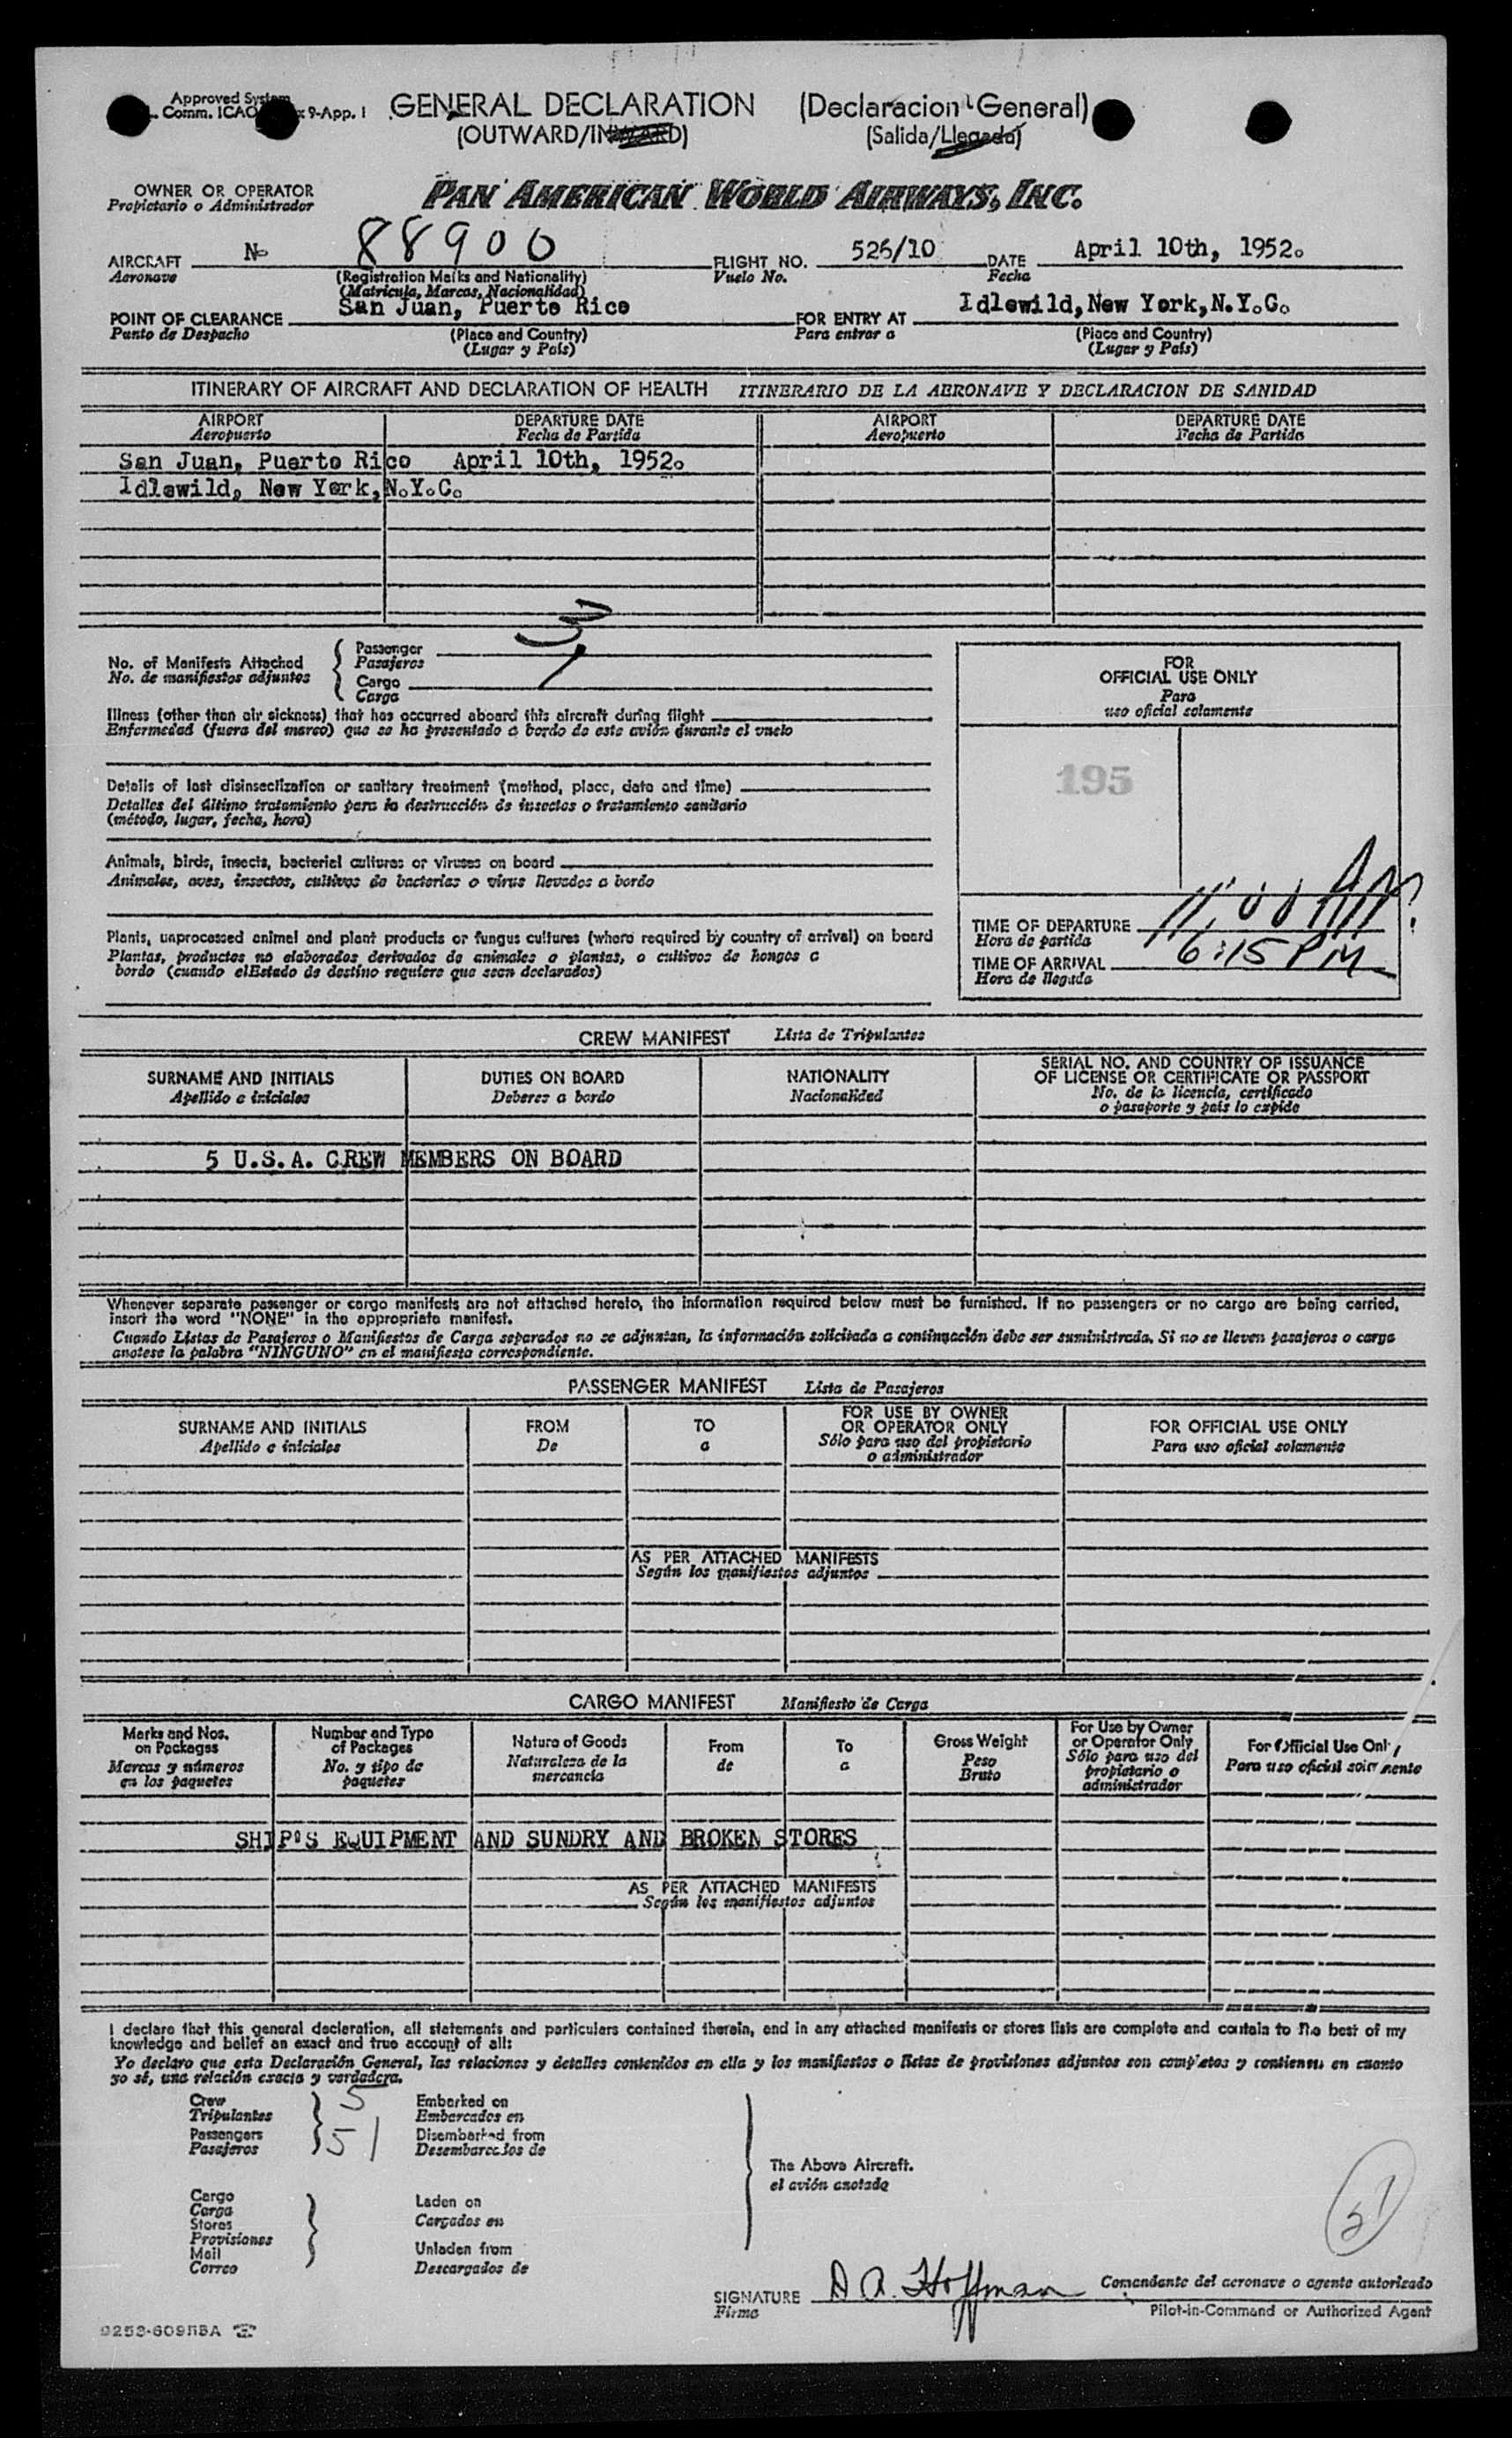 Approved System
Comm. ICAO 9-App. 1
GENERAL DECLARATION (Declaracion General)
(OUTWARD/INWARD) (Salida/Llegada)
OWNER OR OPERATOR
Propietario o Administrador
PAN AMERICAN WORLD AIRWAYS, INC.
AIRCRAFT No 88900 FLIGHT NO. 526/10 DATE April 10th, 1952.
Aeronave (Registration Marks and Nationality) Vuelo No. Fecha
(Matricula, Marcas, Nacionalidad)
POINT OF CLEARANCE San Juan, Puerto Rico FOR ENTRY AT Idlewild, New York, N.Y.C.
Punto de Despacho (Place and Country) Para entrar a (Place and Country)
(Lugar y País) (Lugar y País)
ITINERARY OF AIRCRAFT AND DECLARATION OF HEALTH ITINERARIO DE LA AERONAVE Y DECLARACION DE SANIDAD
AIRPORT DEPARTURE DATE AIRPORT DEPARTURE DATE
Aeropuerto Fecha de Partida Aeropuerto Fecha de Partida
San Juan, Puerto Rico April 10th, 1952.
Idlewild, New York, N.Y.C.
No. of Manifests Attached
No. de manifiestos adjuntos
Passenger 3
Pasajeros
Cargo
Carga
Illness (other than air sickness) that has occurred aboard this aircraft during flight
Enfermedad (fuera del mareo) que se ha presentado a bordo de este avión durante el vuelo
Details of last disinsectization or sanitary treatment (method, place, date and time)
Detalles del último tratamiento para la destrucción de insectos o tratamiento sanitario
(método, lugar, fecha, hora)
Animals, birds, insects, bacterial cultures or viruses on board
Animales, aves, insectos, cultivos de bacterias o virus llevados a bordo
Plants, unprocessed animal and plant products or fungus cultures (where required by country of arrival) on board
Plantas, productos no elaborados derivados de animales o plantas, o cultivos de hongos a
bordo (cuando elEstado de destino requiere que sean declarados)
FOR
OFFICIAL USE ONLY
Para
uso oficial solamente
195
TIME OF DEPARTURE 11:00 AM
Hora de partida
TIME OF ARRIVAL 6:15 PM
Hora de llegada
CREW MANIFEST Lista de Tripulantes
SURNAME AND INITIALS DUTIES ON BOARD NATIONALITY SERIAL NO. AND COUNTRY OF ISSUANCE
OF LICENSE OR CERTIFICATE OR PASSPORT
Apellido e iniciales Deberes a bordo Nacionalidad No. de la licencia, certificado
o pasaporte y país lo expide
5 U.S.A. CREW MEMBERS ON BOARD
Whenever separate passenger or cargo manifests are not attached hereto, the information required below must be furnished. If no passengers or no cargo are being carried,
insert the word "NONE" in the appropriate manifest.
Cuando Listas de Pasajeros o Manifiestos de Carga separados no se adjuntan, la información solicitada a continuación debe ser suministrada. Si no se lleven pasajeros o carga
anotese la palabra "NINGUNO" en el manifiesto correspondiente.
PASSENGER MANIFEST Lista de Pasajeros
SURNAME AND INITIALS FROM TO FOR USE BY OWNER
OR OPERATOR ONLY FOR OFFICIAL USE ONLY
Apellido e iniciales De a Sólo para uso del propietario
o administrador Para uso oficial solamente
AS PER ATTACHED MANIFESTS
Según los manifiestos adjuntos
CARGO MANIFEST Manifiesto de Carga
Marks and Nos.
on Packages
Marcas y números
en los paquetes
Number and Type
of Packages
No. y tipo de
paquetes
Nature of Goods
Naturaleza de la
mercancia
From
de
To
a
Gross Weight
Peso
Bruto
For Use by Owner
or Operator Only
Sólo para uso del
propietario o
administrador
For Official Use Only
Para uso oficial solamente
SHIP'S EQUIPMENT AND SUNDRY AND BROKEN STORES
AS PER ATTACHED MANIFESTS
Según los manifiestos adjuntos
I declare that this general declaration, all statements and particulars contained therein, and in any attached manifests or stores lists are complete and contain to the best of my
knowledge and belief an exact and true account of all:
Yo declaro que esta Declaración General, las relaciones y detalles contenidos en ella y los manifiestos o listas de provisiones adjuntos son completos y contienen en cuanto
yo sé, una relación exacta y verdadera.
Crew 5 Embarked on
Tripulantes Embarcados en
Passengers 51 Disembarked from
Pasajeros Desembarcados de
The Above Aircraft.
el avión anotado
Cargo
Carga
Stores
Provisiones
Mail
Correo
Laden on
Cargados en
Unladen from
Descargados de
21
SIGNATURE D A. Hoffman Comandante del aeronave o agente autorizado
Firma Pilot-in-Command or Authorized Agent